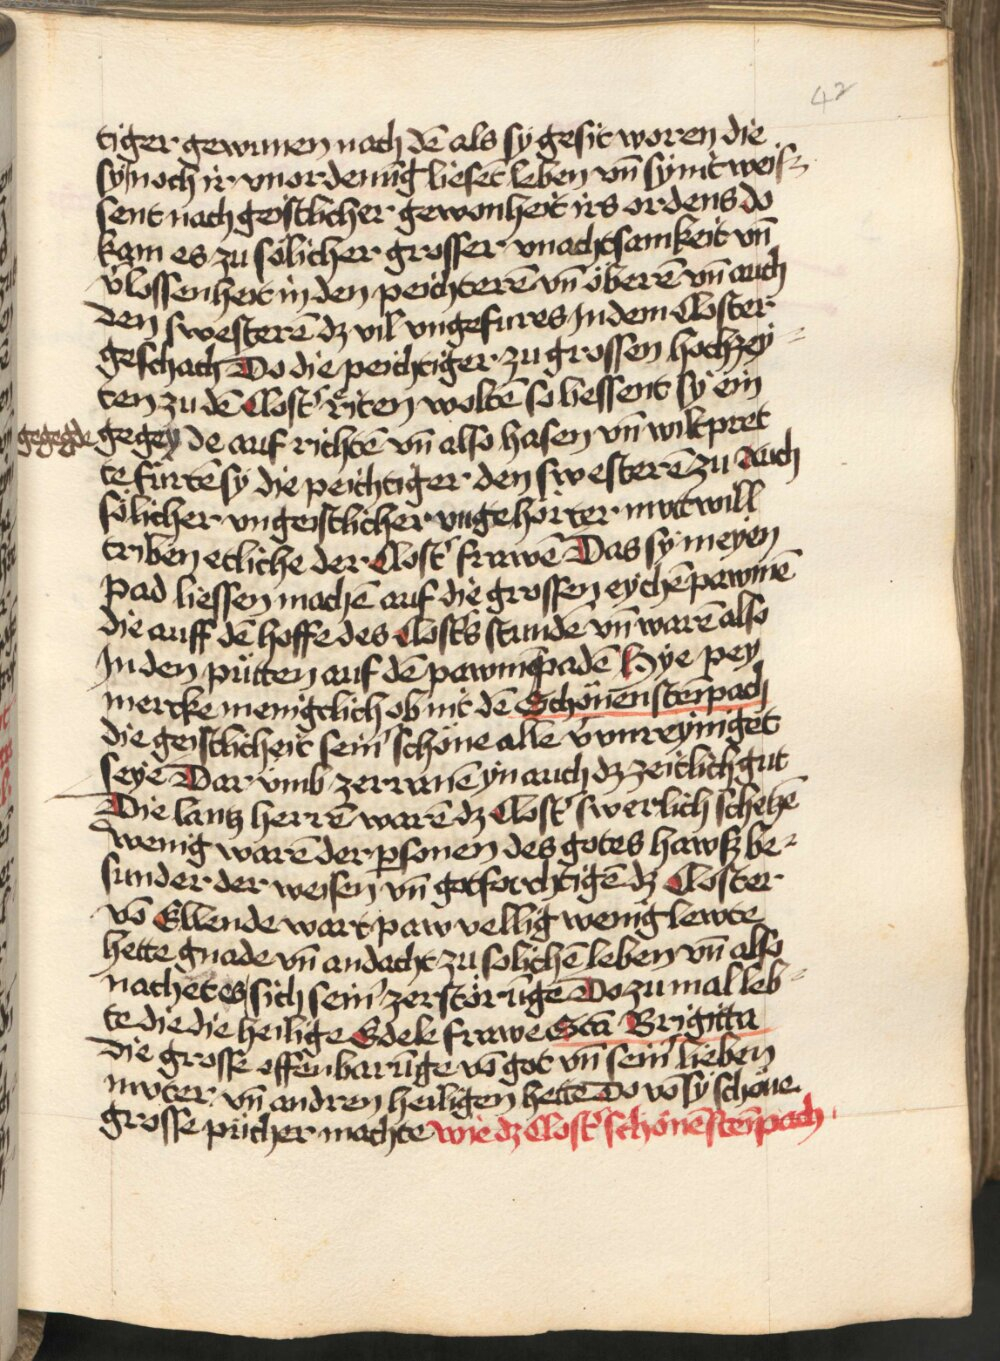 42
tiger gewunen nach dē als sy gesit woren die
sy noch ir vnordenūg liesēt leben vn̄ sy nit weisz
sent nach geistlicher gewonheit irs ordens do
kam es zu sölicher grosser vnachtsamkeit vn̄
v̓lossenheit in den peichterē vn̄ öberē vn̄ auch
den swesterē dz vil vngefures Jn dem Closter
geschach Do die peichtiger zu grossen hochzey⸗
ten zu dē Clost̓ riten woltē so liessent sy ein
gegegde gegey de auf richtē vn̄ also hasen vn̄ wiltpret
te fürtē sy die peichtiger den swesterē zu Auch
sölicher vngeistlicher vngehörter mutwill
triben etliche der Clost̓ frawē Das sy meyen
pad liessen machē auf die grossen eychē pawmē
die auff dē hoffe des Clost̓s stundē vn̄ warē also
Jn den pütten auf dē pawmē padē Hye pey
mercke meniglich ob nit dē Schönensteīpach
die geistlicheit sein̓ schöne alle v̓vnreyniget
seye Dar vmb zerranē yn auch dz zeitlich gut
Die lantz herrē warē dz Clost̓ swerlich schehē
wenig warē der ꝑsonen des gotes hawsz be⸗
sunder der weisen vn̄ gotforchtigē dz Closter
vō Ellende wart paw vellig wenig lewte
hette gnade vn̄ andacht zu solichē leben vn̄ also
nachet es sich sein̓ zerstörūge Do zu mal leb⸗
te die die heilige Edele frawe Scā Brigitta
die grosse offenbarūge vō got vn̄ sein̓ lieben
muter vn̄ andren heiligen hette Do vō sy schöne
grosse pücher machte wie dz Clost̓ schönēsteīpach